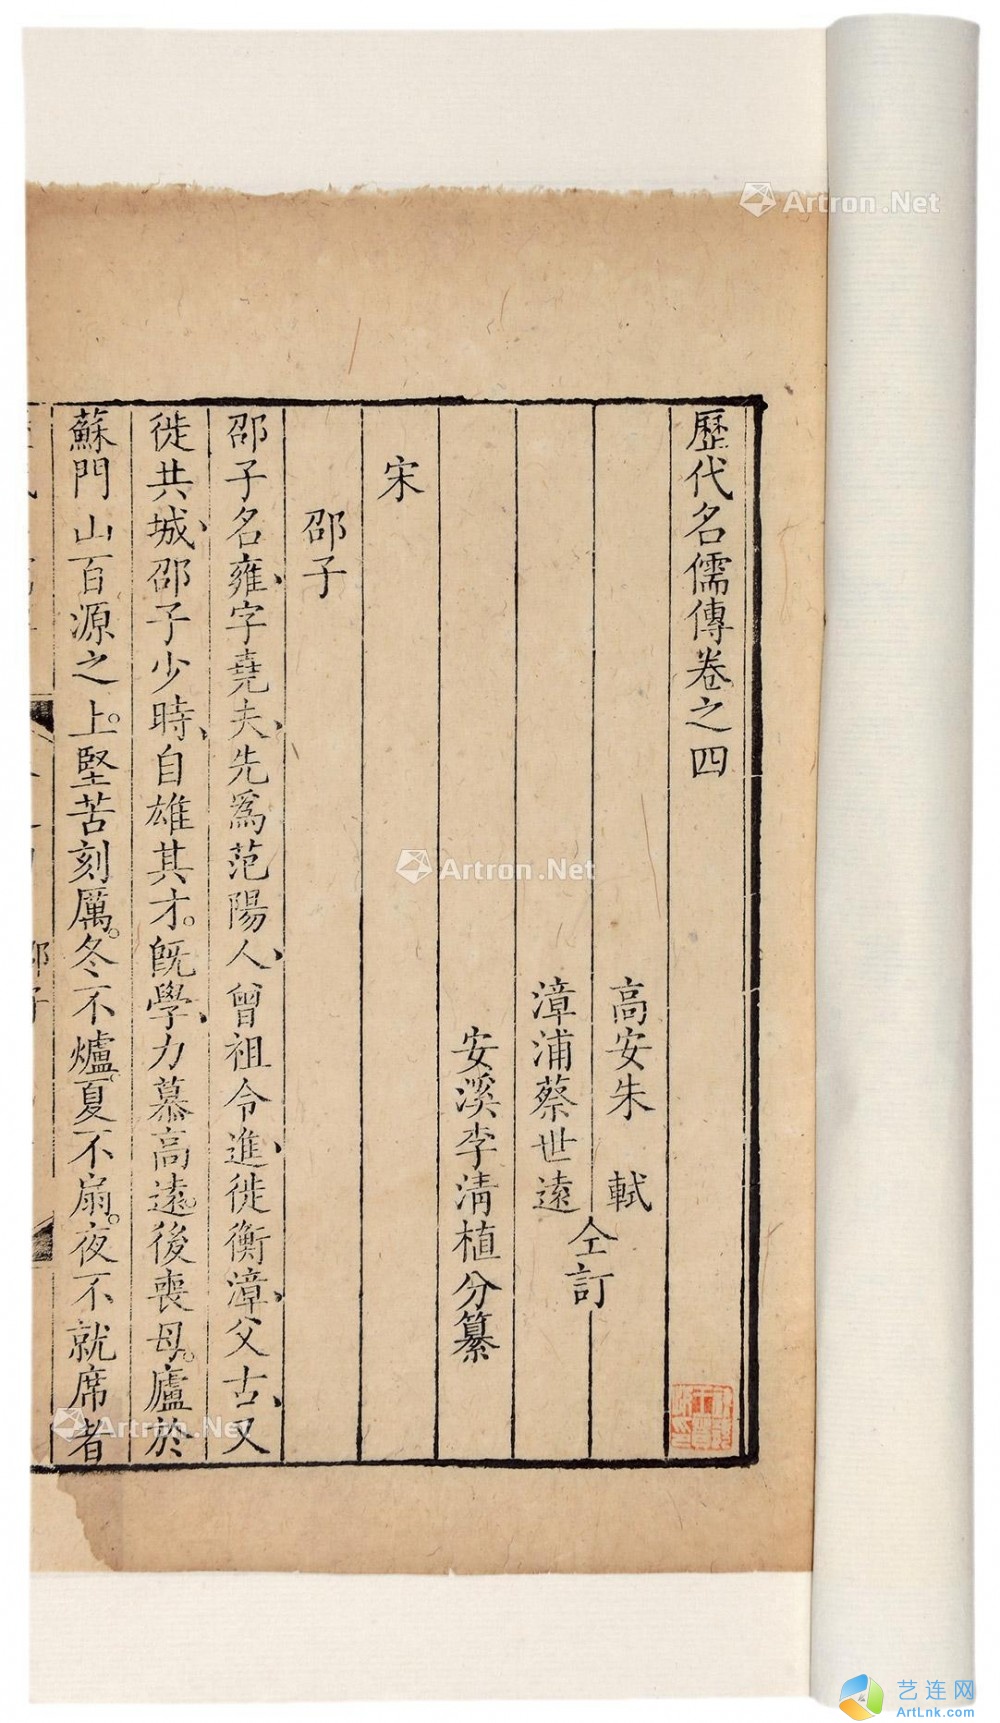 歷代名儒傳卷之四
高安朱 軾
漳浦蔡世遠
仝訂
安溪李清植分纂
宋
邵子
邵子名雍、字堯夫、先爲范陽人、曾祖令進、徙衡漳、父古、又
徙共城、邵子少時、自雄其才。旣學、力慕高遠。後喪母。廬於
蘇門山百源之上。堅苦刻厲。冬不爐。夏不扇。夜不就席者
邵子
Artron.Net
Artron.Net
Artron.Net
艺连网
ArtLnk.com